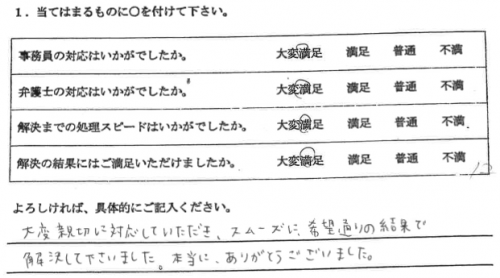 1．当てはまるものに〇を付けて下さい。
事務員の対応はいかがでしたか。　大変満足　満足　普通　不満
弁護士の対応はいかがでしたか。　大変満足　満足　普通　不満
解決までの処理スピードはいかがでしたか。　大変満足　満足　普通　不満
解決の結果にはご満足いただけましたか。　大変満足　満足　普通　不満
よろしければ、具体的にご記入ください。
大変親切に対応していただき、スムーズに、希望通りの結果で
解決して下さいました。本当に、ありがとうございました。